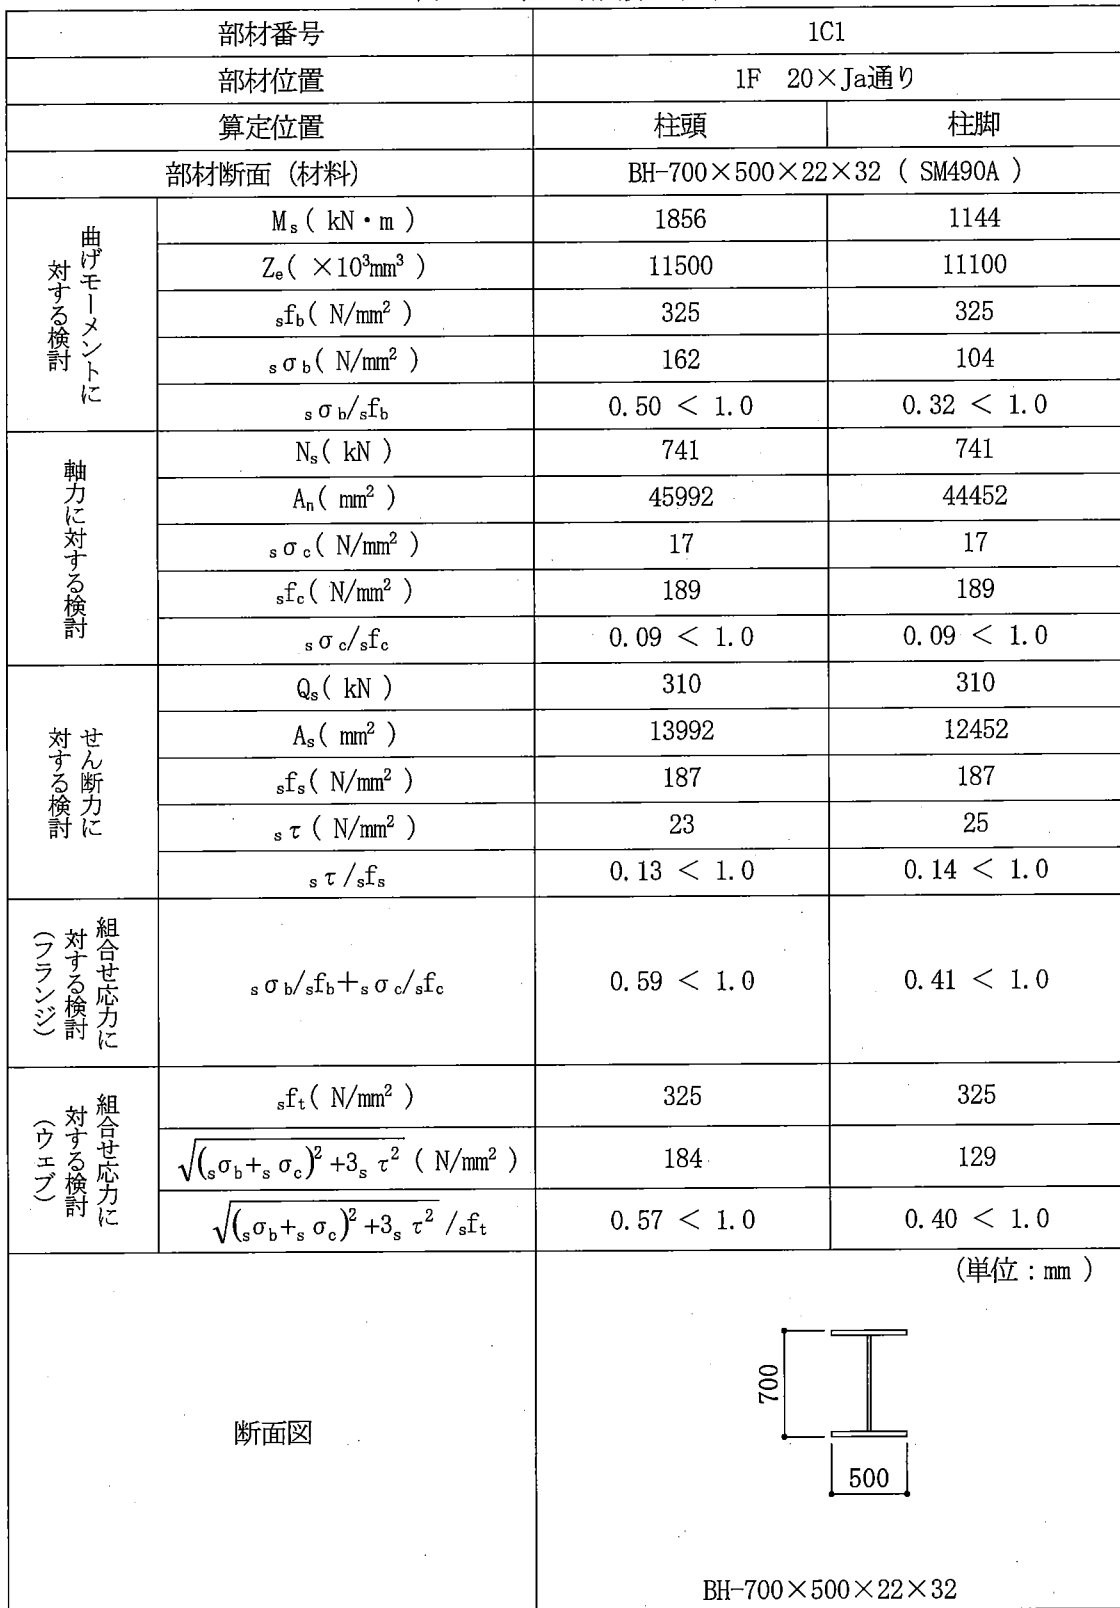 部材番号 1C1
部材位置 1F 20×Ja通り
算定位置 柱頭 柱脚
部材断面 (材料) BH-700×500×22×32 ( SM490A )
曲げモーメントに
対する検討
Ms( kN・m ) 1856 1144
Ze( ×10³mm³ ) 11500 11100
sfb( N/mm² ) 325 325
sσb( N/mm² ) 162 104
sσb/sfb 0.50 < 1.0 0.32 < 1.0
軸力に対する検討
Ns( kN ) 741 741
An( mm² ) 45992 44452
sσc( N/mm² ) 17 17
sfc( N/mm² ) 189 189
sσc/sfc 0.09 < 1.0 0.09 < 1.0
せん断力に
対する検討
Qs( kN ) 310 310
As( mm² ) 13992 12452
sfs( N/mm² ) 187 187
sτ( N/mm² ) 23 25
sτ/sfs 0.13 < 1.0 0.14 < 1.0
組合せ応力に
対する検討
(フランジ)
sσb/sfb+sσc/sfc 0.59 < 1.0 0.41 < 1.0
組合せ応力に
対する検討
(ウェブ)
sft( N/mm² ) 325 325
√(sσb+sσc)²+3sτ² ( N/mm² ) 184 129
√(sσb+sσc)²+3sτ² /sft 0.57 < 1.0 0.40 < 1.0
断面図
(単位:mm )
700
500
BH-700×500×22×32